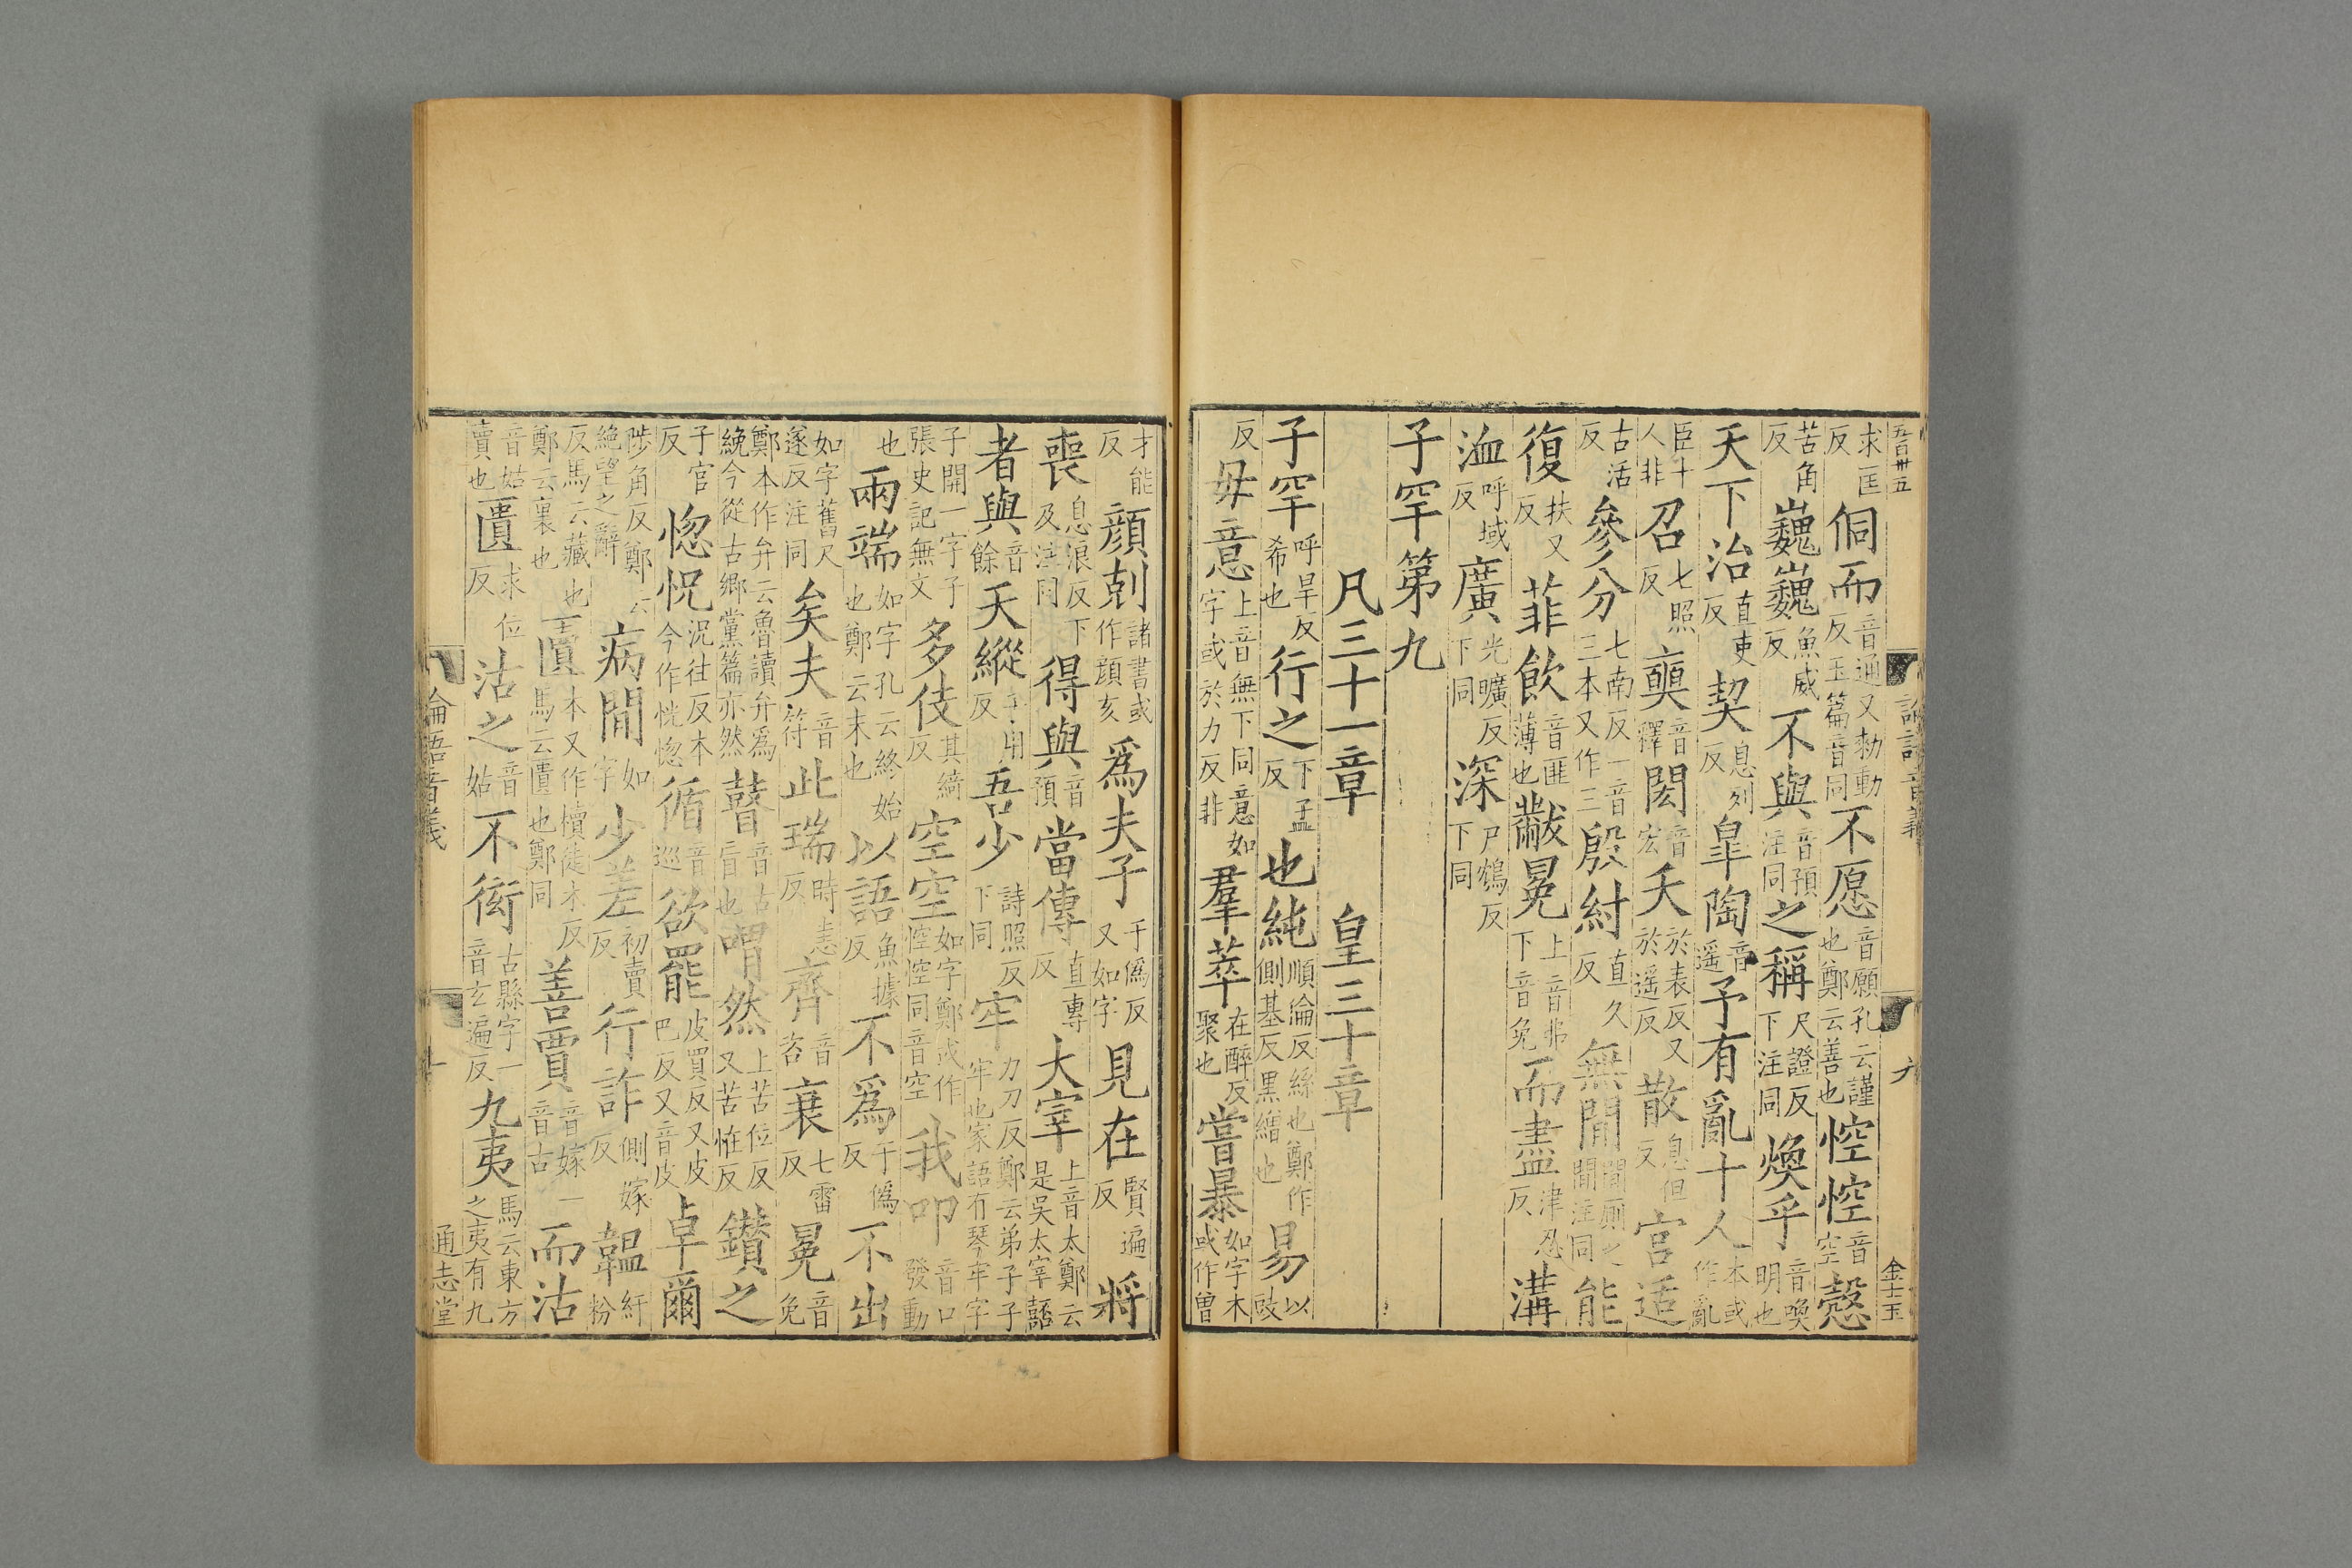 五百卅五
金士玉
求匡反侗而音通又勑動反玉篇音同不愿音願孔云謹也鄭云善也悾悾音空愨
苦角反巍巍魚威反不與音預注同之稱尺證反下注同煥乎音喚明也
天下治直吏反契息列反皐陶音遥予有亂十人本或作亂
臣十人非召七照反奭音釋閎音宏夭於表反又於遥反散息但反宫适
古活反參分七南反一音三本又作三殷紂直久反無閒閒廁之閒注同能
復扶又反菲飲音匪薄也黻冕上音弗下音免而盡津忍反溝
洫呼域反廣光曠反下同深尸鴆反下同
子罕第九
凡三十一章皇三十章
子罕呼旱反希也行之下孟反也純順倫反絲也鄭作側基反黑繒也易以豉
反毋意上音無下同意如字或於力反非羣萃在醉反聚也嘗暴如字本或作曾
才能反顔剋諸書或作顔亥爲夫子于僞反又如字見在賢遍反將
喪息浪反下及注同得與音預當傳直專反大宰上音太鄭云是吴太宰嚭
者與音餘天縱子用反吾少詩照反下同牢力刀反鄭云弟子子牢也家語有琴牢字
子開一字子張史記無文多伎其綺反空空如字鄭或作悾悾同音空我叩音口發動
也兩端如字孔云終始也鄭云末也以語魚據反不爲于僞反不出
如字舊尺遂反注同矣夫音符此瑞時恚反齊音咨衰七雷反冕音免
鄭本作弁云魯讀弁爲絻今從古鄉黨篇亦然瞽音古盲也喟然上苦位反又苦怪反鑚之
子官反惚怳況往反本今作恍惚循音巡欲罷皮買反又皮巴反又音皮卓爾
陟角反鄭云絶望之辭病閒如字少差初賣反行詐側嫁反韞紆粉
反馬云藏也鄭云裹也匵本又作櫝徒木反馬云匱也鄭同善賈音嫁一音古而沽
音姑賣也匱求位反沽之音姑不衒古縣字一音玄遍反九夷馬云東方之夷有九
論語音義
十
通志堂